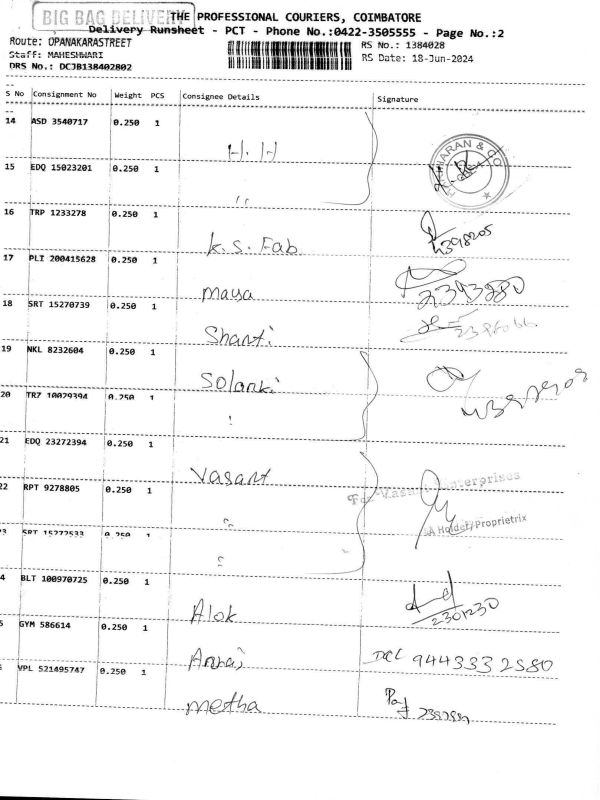 BIG BAG DELIVERY
THE PROFESSIONAL COURIERS, COIMBATORE
Delivery Runsheet - PCT - Phone No.:0422-3505555 - Page No.:2
Route: OPANAKARASTREET RS No.: 1384028
Staff: MAHESHWARI RS Date: 18-Jun-2024
DRS No.: DCJB138402802
S No Consignment No Weight PCS Consignee Details Signature
14 ASD 3540717 0.250 1
H.H
15 EDQ 15023201 0.250 1
"
16 TRP 1233278 0.250 1
K.S. Fab
17 PLI 200415628 0.250 1
Maya 2393880
18 SRT 15270739 0.250 1
Shanti
19 NKL 8232604 0.250 1
Solanki
20 TRZ 10029394 0.250 1
21 EDQ 23272394 0.250 1
Vasant
22 RPT 9278805 0.250 1
For Vasant Enterprises
A Holder/Proprietrix
23 SRT 15272533 0.250 1
4 BLT 100970725 0.250 1
Alok 2301230
5 GYM 586614 0.250 1
DCL 9443332580
VPL 521495747 0.250 1
Metha